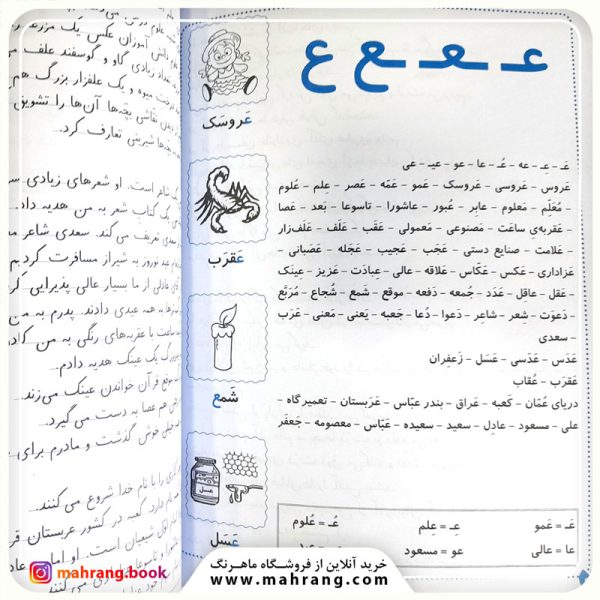 عـ ـعـ ـع ع
عَـ - عِـ - عه - عُـ - عا - عو - عیـ - عی
عَروس - عَروسی - عَروسک - عَمو - عَمّه - عَصر - عِلم - عُلوم
- مُعَلِّم - مَعلوم - عابِر - عُبور - عاشورا - تاسوعا - بَعد - عَصا
- عَقربه‌ی ساعَت - مَصنوعی - معمولی - عَقَب - عَلَف - عَلَف‌زار
- عَلامت - صنایع دستی - عَجَب - عَجیب - عَجَله - عَصَبانی -
عَزاداری - عَکس - عَکّاس - عَلاقه - عالی - عِبادَت - عَزیز - عِینک
- عَقل - عاقِل - عَدَد - جُمعه - دَفعه - موقع - شَمع - شُجاع - مُرَبَّع
- دَعوَت - شِعر - شاعِر - دَعوا - دُعا - جَعبه - یَعنی - مَعنی - عَرَب
- سعدی
عَدَس - عَدَسی - عَسَل - زَعفِران
عَقرَب - عُقاب
دریای عُمّان - کَعبه - عَراق - بندر عبّاس - عَرَبستان - تعمیرگاه -
علی - مسعود - عادِل - سعید - سعیده - عَبّاس - معصومه - جَعفَر
عَـ = عَمو
عِـ = عِلم
عُـ = عُلوم
عا = عالی
عو = مسعود
عَروسَک
عَقرَب
شَمع
عسل
عَسَل
علوم درس می
دانش آموزان عکس یک مزرعه
تعداد زیادی گاو و گوسفند علف می
درخت میوه و یک علفزار بزرگ هم
نقاشی بچّه‌ها آن‌ها را تشویق
بچّه‌ها شیرینی تعارف کرد.
شاعر است. او شعرهای زیادی
یک کتاب شعر به من هدیه داد.
تعریف می کند. سعدی شاعر
عید نوروز به شیراز مسافرت کردیم
از ما بسیار عالی پذیرایی
همه عیدی دادند. پدرم به من
ساعت با عقربه‌های رنگی به من
یک عینک هدیه دادم.
موقع قرآن خواندن عینک می‌زند.
هم عصا به دست می گیرد.
خیلی خوش گذشت و مادرم برای
را با نام خدا شروع می کنند.
دارد. کعبه در کشور عربستان
امام اول شیعیان است. او امامی
خرید آنلاین از فروشگاه ماهرنگ
www.mahrang.com
mahrang.book